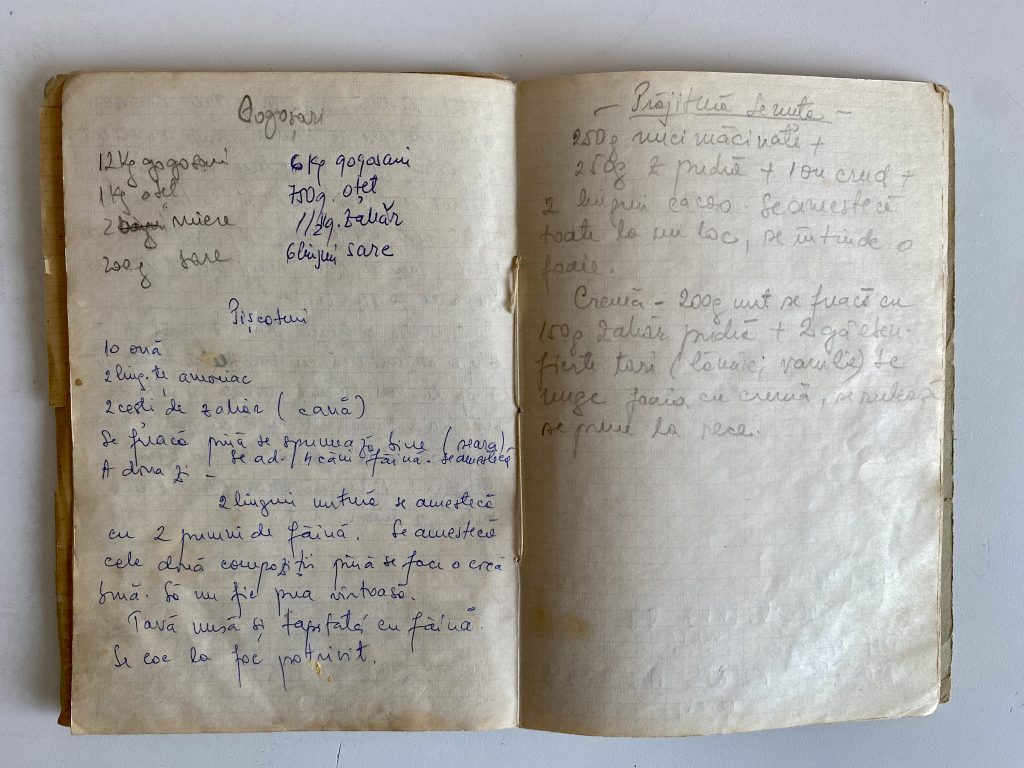 Gogoșari
12 Kg gogoșari
1 Kg oțet
2 miere
200g sare
6 Kg gogosari
750g. oțet
1/2 kg. zahăr
6 linguri sare
Pișcoturi
10 ouă
2 ling. țe amoniac
2 cești de zahăr (cană)
Se freacă pînă se spumează bine (seara)
A doua zi se ad. 4 căni făină. Se amestecă
2 linguri untură se amestecă
cu 2 pumni de făină. Se amestecă
cele două compoziții pînă se face o cocă
bună. Să nu fie prea vîrtoasă.
Tavă unsă și tapetată cu făină.
Se coc la foc potrivit.
- Prăjitură -
250g nuci măcinate +
250g z pudră + 1 ou crud +
2 linguri cacao. Se amestecă
toate la un loc, se întinde o
foaie.
Cremă - 200g unt se freacă cu
150g zahăr pudră + 2
fierte tari (lămâie, vanilie) se
unge foaia cu cremă, se rulează
se pune la rece.